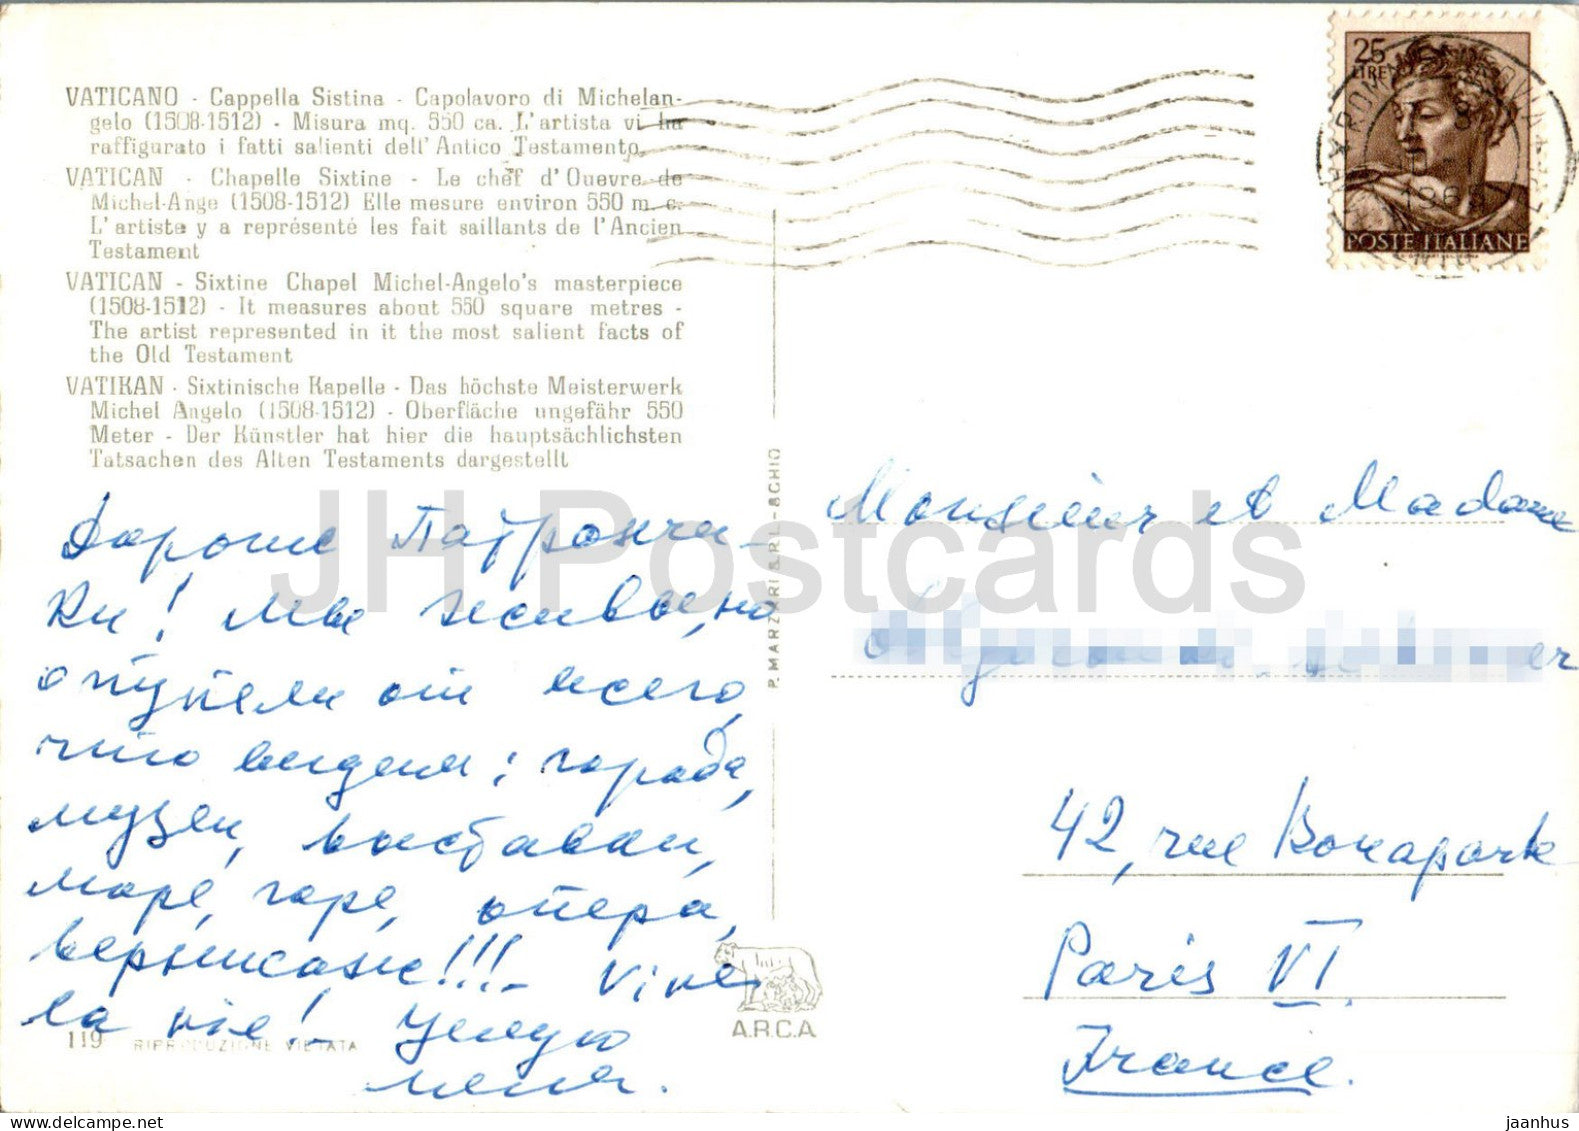 VATICANO - Cappella Sistina - Capolavoro di Michelan-
gelo (1508-1512) - Misura mq. 550 ca. L'artista vi ha
raffigurato i fatti salienti dell'Antico Testamento.
VATICAN - Chapelle Sixtine - Le chef d'Ouevre de
Michel-Ange (1508-1512) Elle mesure environ 550 m. c.
L'artiste y a représenté les fait saillants de l'Ancien
Testament
VATICAN - Sixtine Chapel Michel-Angelo's masterpiece
(1508-1512) - It measures about 550 square metres -
The artist represented in it the most salient facts of
the Old Testament
VATIKAN - Sixtinische Kapelle - Das höchste Meisterwerk
Michel Angelo (1508-1512) - Oberfläche ungefähr 550
Meter - Der Künstler hat hier die hauptsächlichsten
Tatsachen des Alten Testaments dargestellt
Дорогие Патрончи-
ки! Мы живы, но
отупели от всего,
что видели: города,
музеи, выставки,
море, горе, опера,
Vive
la vie! Целую
119 RIPRODUZIONE VIETATA
P. MARZARI S.R.L. - SCHIO
A.R.C.A.
25
LIRE
POSTE ITALIANE
ROMA
196
Monsieur et Madame
er
42, rue Bonaparte
Paris VI.
France.
JH Postcards
jaanhus